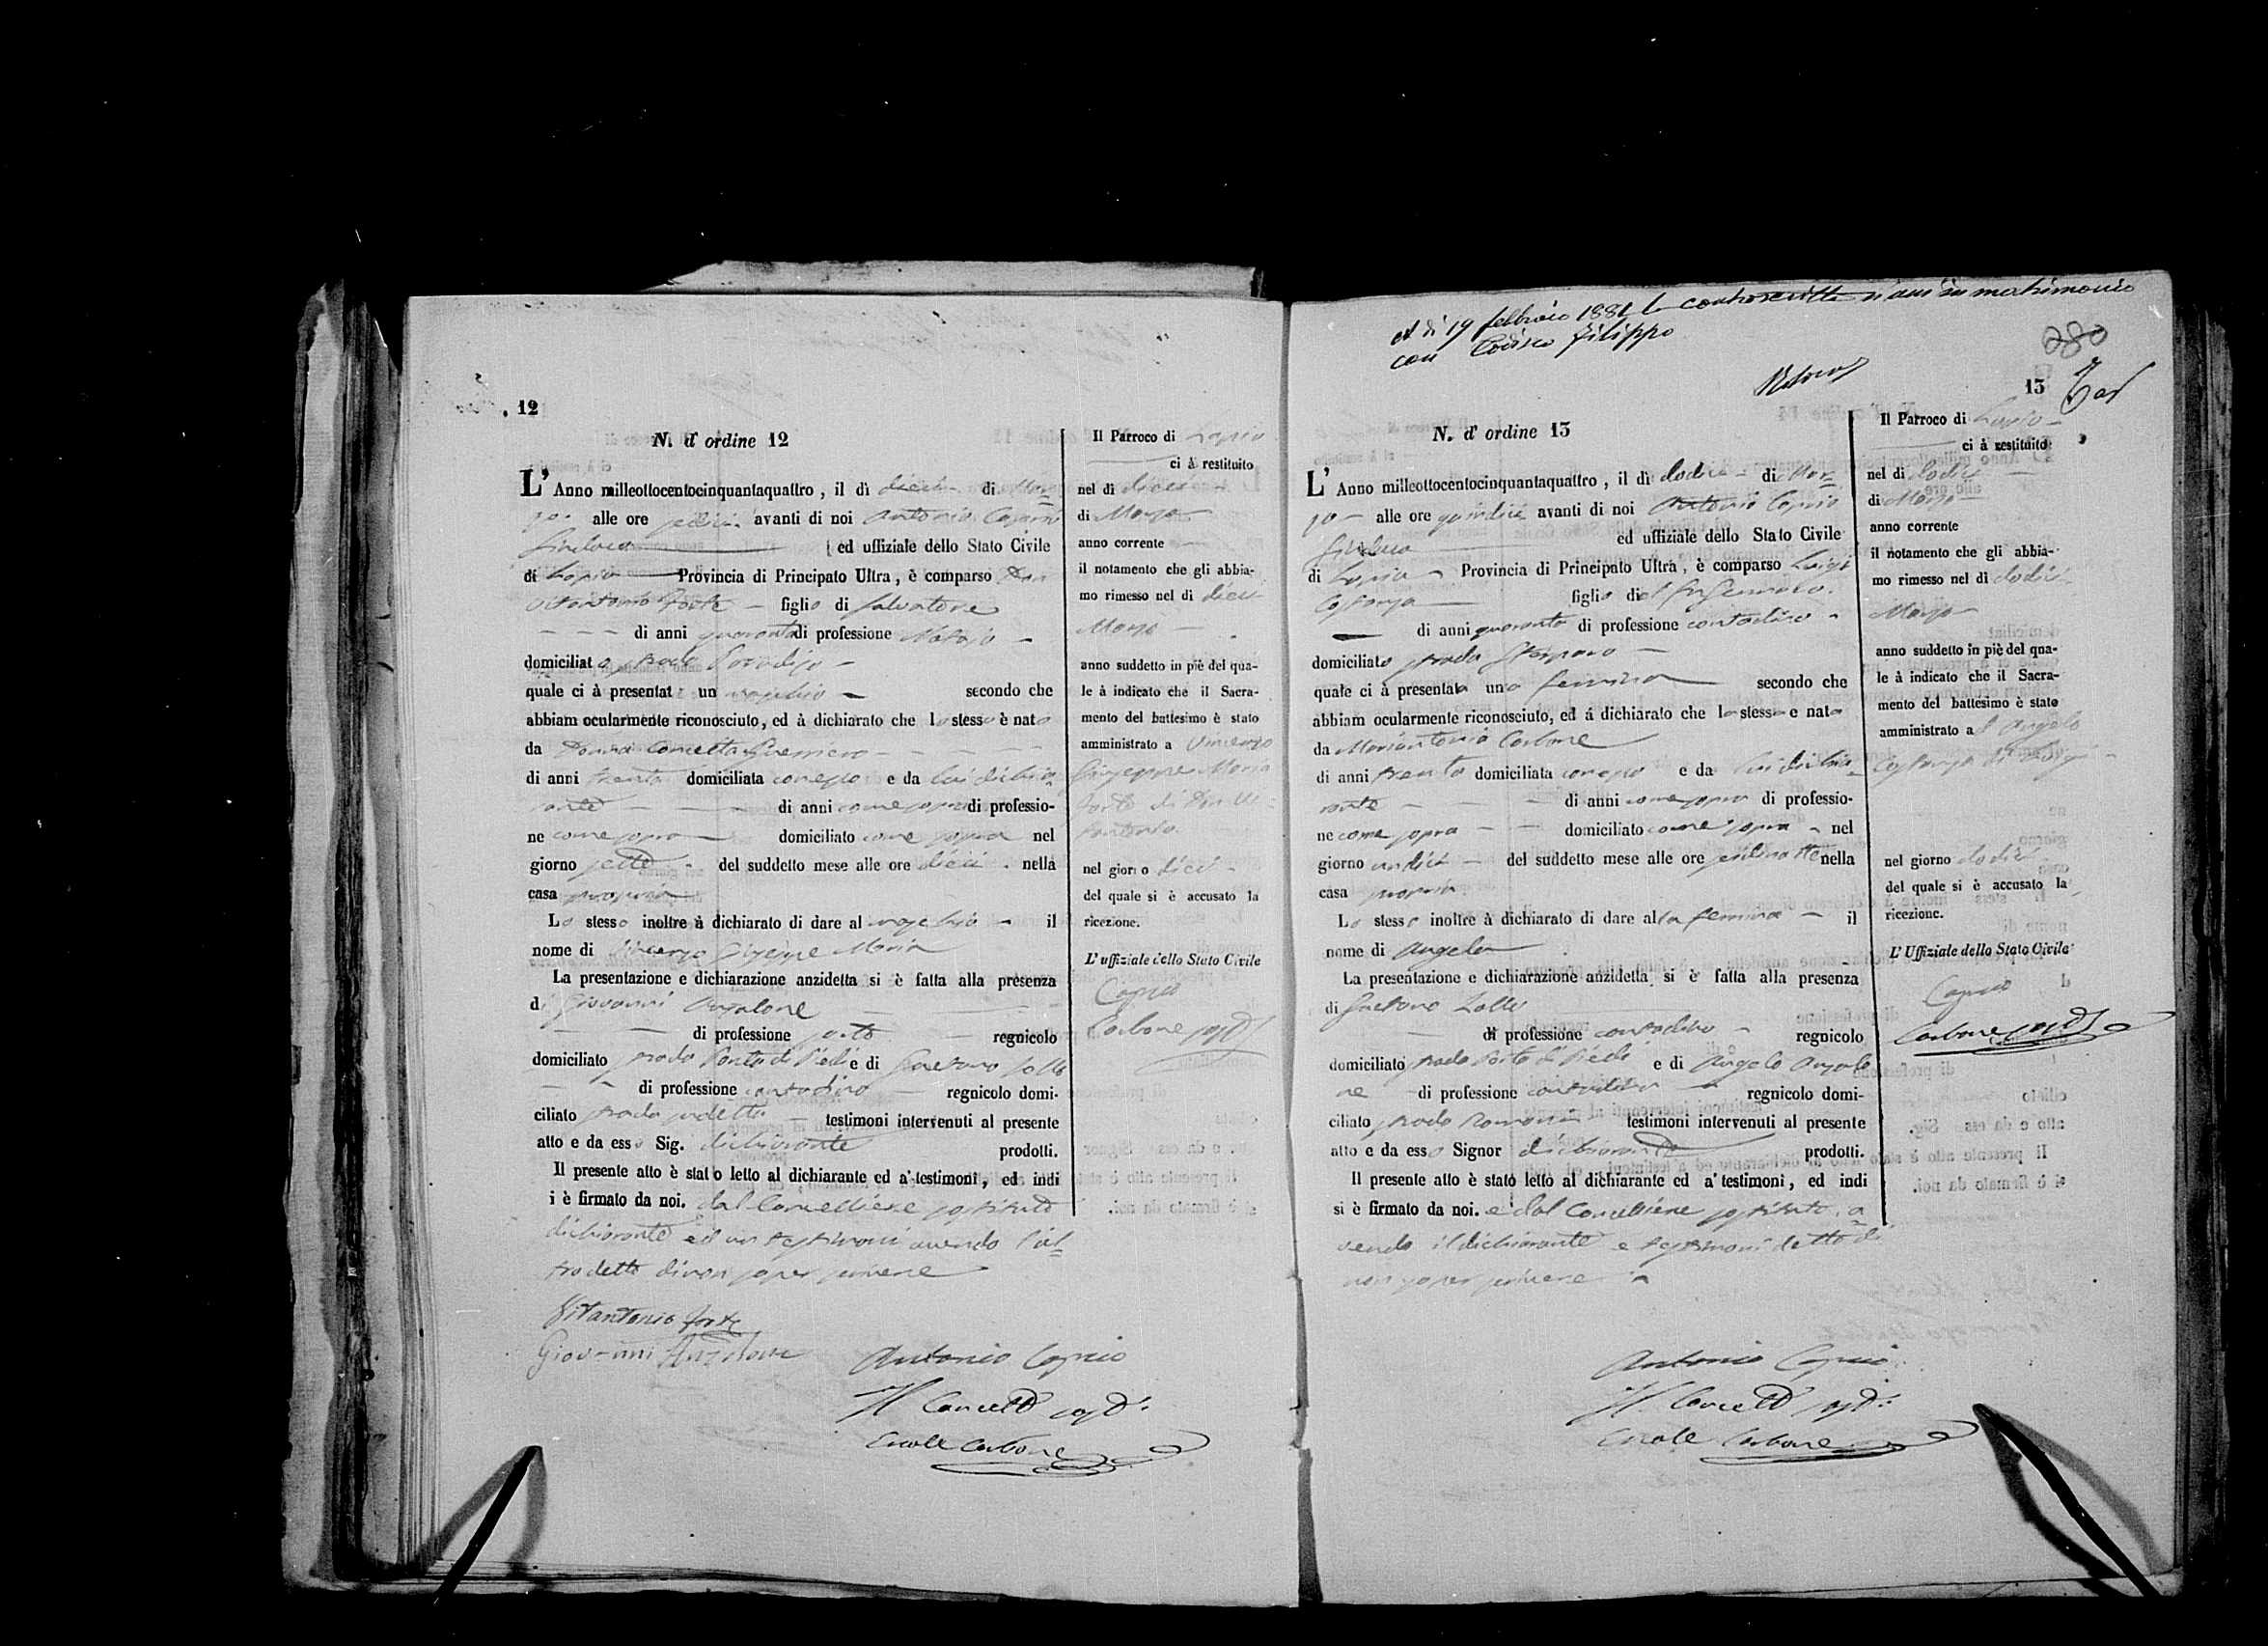 12
N. d' ordine 12
L' Anno milleottocentocinquantaquattro, il dì dieci di Mar=
zo alle ore sedici avanti di noi Antonio Caprio
Sindaco ed uffiziale dello Stato Civile
di Lapio Provincia di Principato Ultra, è comparso Don
Vitantonio Forte figlio di Salvatore
di anni quaranta di professione Notajo
domiciliato strada Paradiso
quale ci à presentat un maschio secondo che
abbiam ocularmente riconosciuto, ed à dichiarato che lo stesso è nato
da Donna Concetta Guerriero
di anni trenta domiciliata con esso e da lui dichia=
rante di anni come sopra di professio-
ne come sopra domiciliato come sopra nel
giorno sette del suddetto mese alle ore dieci nella
casa propria
Lo stesso inoltre à dichiarato di dare al maschio il
nome di Vincenzo Giuseppe Maria
La presentazione e dichiarazione anzidetta si è fatta alla presenza
di Giovanni Anzalone
di professione sarto regnicolo
domiciliato strada Porta di Piedi e di Gaetano Lollo
di professione contadino regnicolo domi-
ciliato strada sudetta testimoni intervenuti al presente
atto e da esso Sig. dichiarante prodotti.
Il presente atto è stato letto al dichiarante ed a' testimoni, ed indi
i è firmato da noi. dal Cancelliere sostituto
dichiarante ed un testimoni avendo l'al=
tro detto di non saper scrivere
Vitantonio Forte
Giovanni Anzalone
Antonio Caprio
Il Cancell sost:
Ercole Carbone
Il Parroco di Lapio
ci à restituito
nel di dieci
di Marzo
anno corrente
il notamento che gli abbia-
mo rimesso nel di dieci
Marzo
anno suddetto in piè del qua-
le à indicato che il Sacra-
mento del battesimo è stato
amministrato a Vincenzo
Giuseppe Maria
Forte di Don Vi=
tantonio
nel giorno dieci
del quale si è accusato la
ricezione.
L' uffiziale dello Stato Civile
Caprio
Carbone sost
A di 19 febbraio 1881 la controscritta si unì in matrimonio
con Filippo
280
13
N. d' ordine 13
L' Anno milleottocentocinquantaquattro, il di dodici di Mar=
zo alle ore quindici avanti di noi Antonio Caprio
Sindaco ed uffiziale dello Stato Civile
di Lapio Provincia di Principato Ultra, è comparso Luigi
Costanza figlio di Gennaro
di anni quaranta di professione contadino
domiciliato strada
quale ci à presentata una femina secondo che
abbiam ocularmente riconosciuto, ed á dichiarato che la stessa e nata
da Mariantonia Carbone
di anni trenta domiciliata con esso e da lui dichia=
rante di anni come sopra di professio-
ne come sopra domiciliato come sopra nel
giorno undici del suddetto mese alle ore nella
casa propria
Lo stesso inoltre à dichiarato di dare alla femina il
nome di Angela
La presentazione e dichiarazione anzidetta si è fatta alla presenza
di Gaetano Lollo
di professione contadino regnicolo
domiciliato strada Porta di Piedi e di Angelo Anzalo
ne di professione contadino regnicolo domi-
ciliato strada Romana testimoni intervenuti al presente
atto e da esso Signor dichiarante prodotti.
Il presente atto è stato letto al dichiarante ed a' testimoni, ed indi
si è firmato da noi. e dal Cancelliere sostituto. a
vendo il dichiarante e testimoni detto di
non saper scrivere
Antonio Caprio
Il Cancell sost:
Ercole Carbone
Il Parroco di Lapio
ci à restituito
nel di dodici
di Marzo
anno corrente
il notamento che gli abbia-
mo rimesso nel di dodici
Marzo
anno suddetto in piè del qua-
le à indicato che il Sacra-
mento del battesimo è stato
amministrato a Angela
Costanza di Luigi
nel giorno dodici
del quale si è accusato la
ricezione.
L' Uffiziale dello Stato Civile
Caprio
Carbone sost